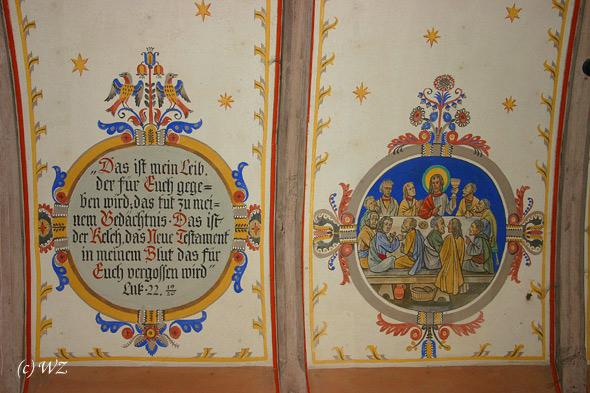 „Das ist mein Leib.
der für Euch gege=
ben wird, das tut zu mei=
nem Gedächtnis · Das ist
der Kelch, das Neue Testament
in meinem Blut das für
Euch vergossen wird"
Luk · 22. 19/20
(c) WZ